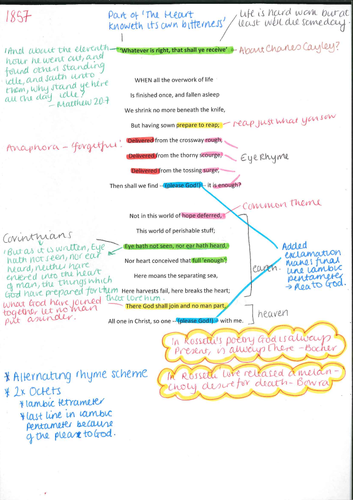 1857
Part of 'The Heart
knoweth its own bitterness'
life is hard work but at
least well die someday
'Whatever is right, that shall ye receive'
About Charles Cayley?
'And about the eleventh
hour he went out, and
found others standing
idle, and saith unto
them, why stand ye here
all the day idle?'
- Matthew 20:7
WHEN all the overwork of life
Is finished once, and fallen asleep
We shrink no more beneath the knife,
But having sown prepare to reap;
reap just what you sow
Anaphora - 'forgetful'
Delivered from the crossway rough,
Delivered from the thorny scourge,
Eye Rhyme
Delivered from the tossing surge,
Then shall we find - (please God!) - it is enough?
Not in this world of hope deferred,
Common Theme
This world of perishable stuff;
Corinthians
'But as it is written, Eye
hath not seen, nor ear
heard, neither have
entered into the heart
of man, the things which
God have prepared for them
that love him.
Eye hath not seen, nor ear hath heard,
Nor heart conceived that full 'enough':
Here moans the separating sea,
Here harvests fail, here breaks the heart;
earth
There God shall join and no man part,
All one in Christ, so one - (please God!) - with me.
heaven
what God have joined
together let no man
put asunder.
Added
exclamation
makes final
line iambic
pentameter
→ plea to God.
In Rossetti's poetry God is always
Present, is always there - Bocher
In Rossetti 'love released a melan-
choly desire for death - Bowra
* Alternating rhyme scheme
* 2x Octets
* iambic tetrameter
* last line in iambic
pentameter because
of the plea to God.